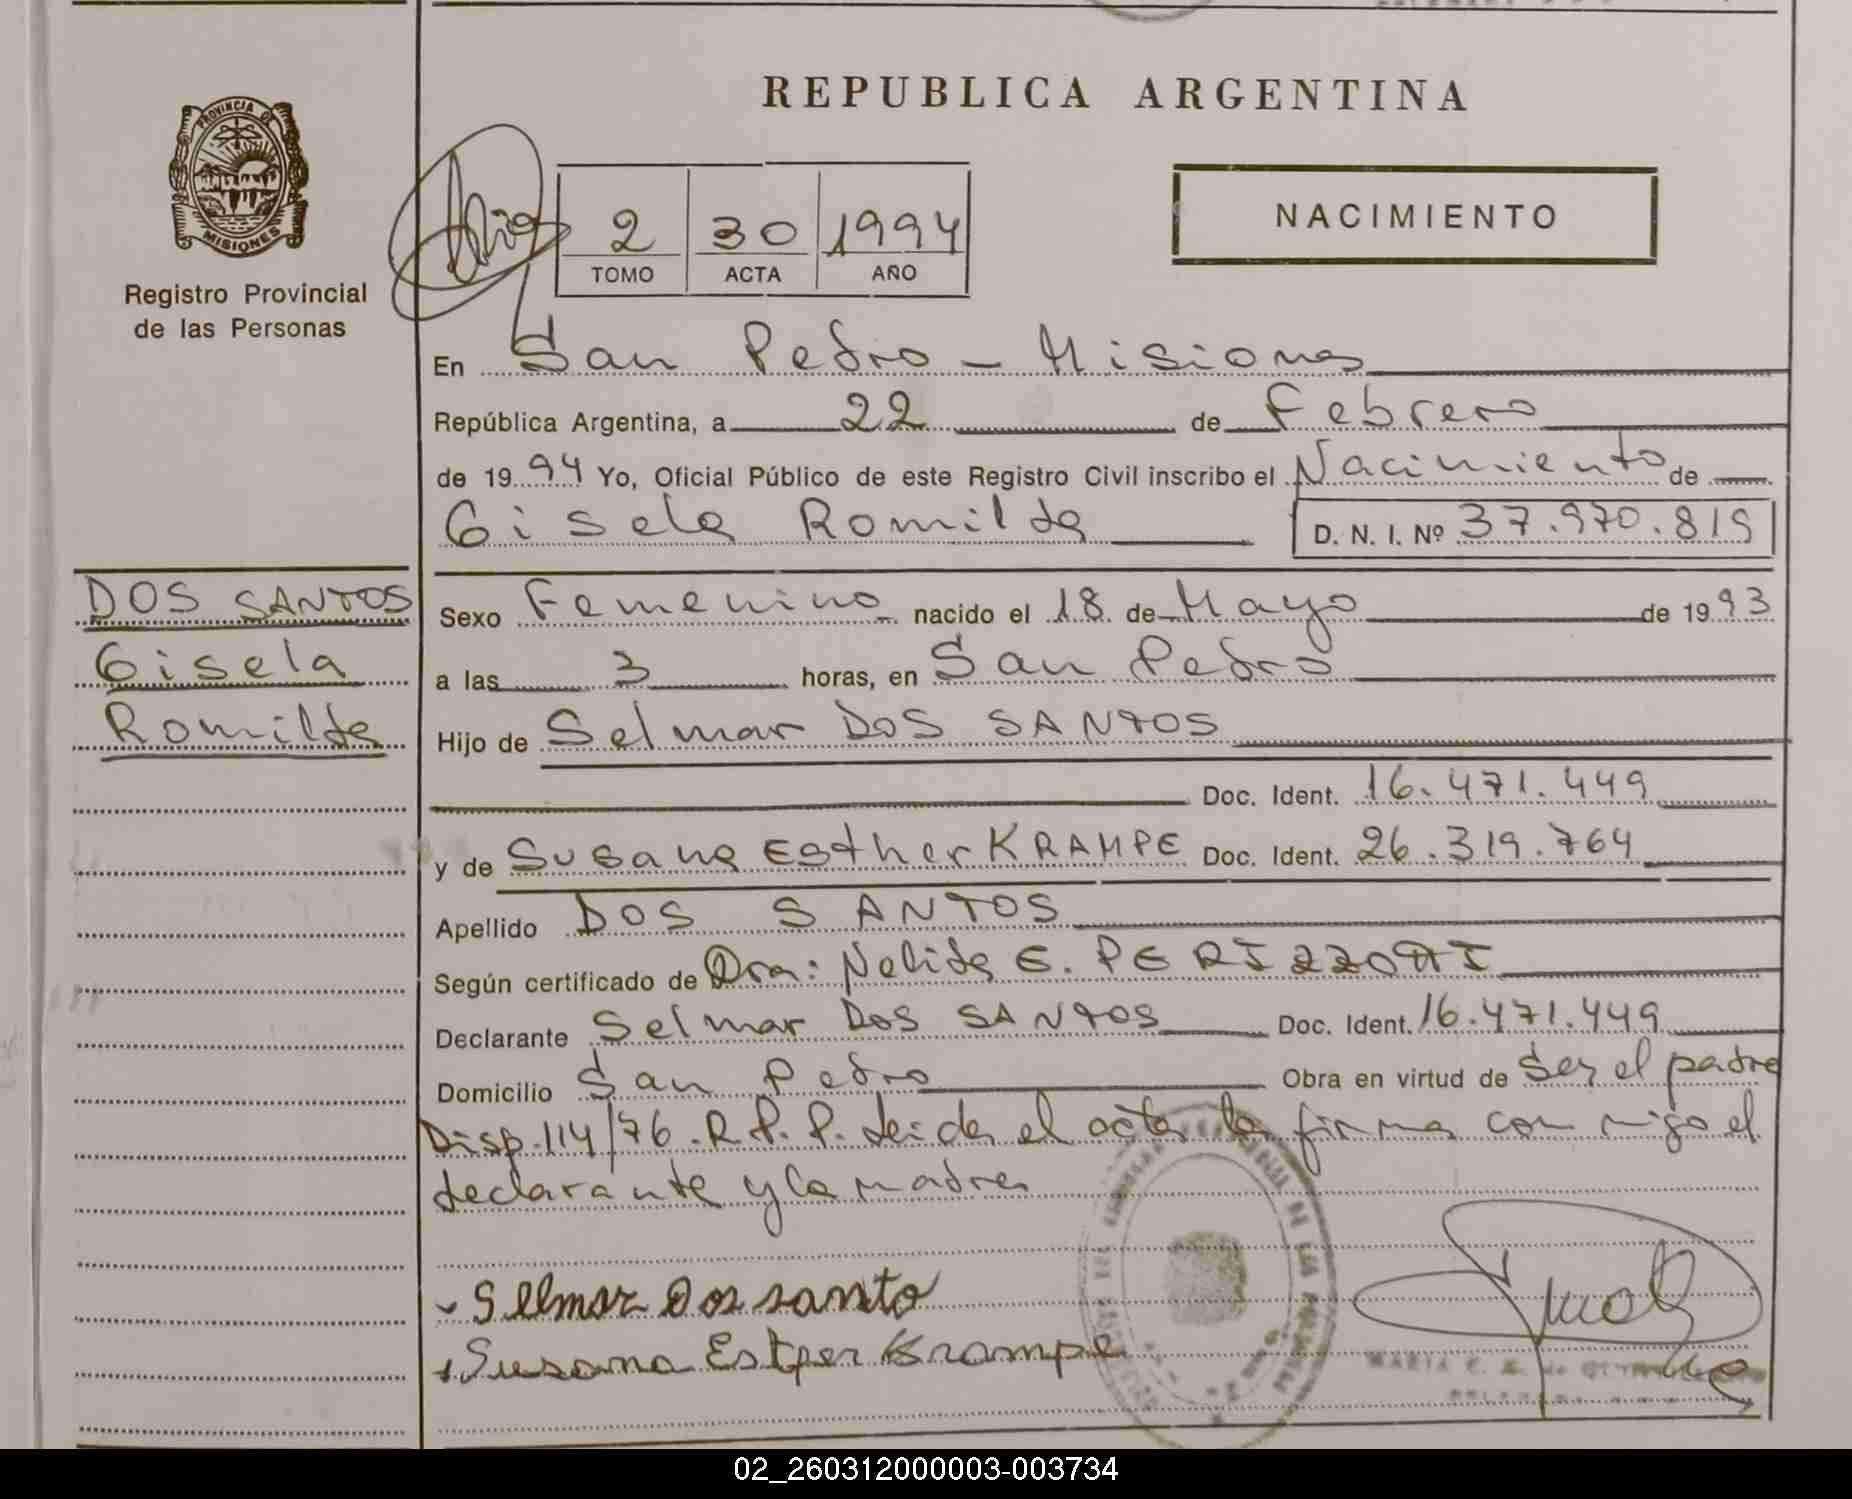 REPUBLICA ARGENTINA
PROVINCIA DE
MISIONES
Registro Provincial
de las Personas
2 30 1994
TOMO ACTA AÑO
NACIMIENTO
En San Pedro - Misiones
República Argentina, a 22 de Febrero
de 1994 Yo, Oficial Público de este Registro Civil inscribo el Nacimiento de
Gisela Romilda D. N. I. Nº 37.970.819
DOS SANTOS
Gisela
Romilda
Sexo Femenino nacido el 18 de Mayo de 1993
a las 3 horas, en San Pedro
Hijo de Selmar DOS SANTOS
Doc. Ident. 16.471.449
y de Susana Esther KRAMPE Doc. Ident. 26.319.764
Apellido DOS SANTOS
Según certificado de Dra: Nelida E.
Declarante Selmar DOS SANTOS Doc. Ident. 16.471.449
Domicilio San Pedro Obra en virtud de Ser el padre
Disp. 114/76. R.P.P. Leida el acta la firma con migo el
declarante y la madre
Selmar Dos santo
Susana Estper Krampe
MARIA
02_260312000003-003734